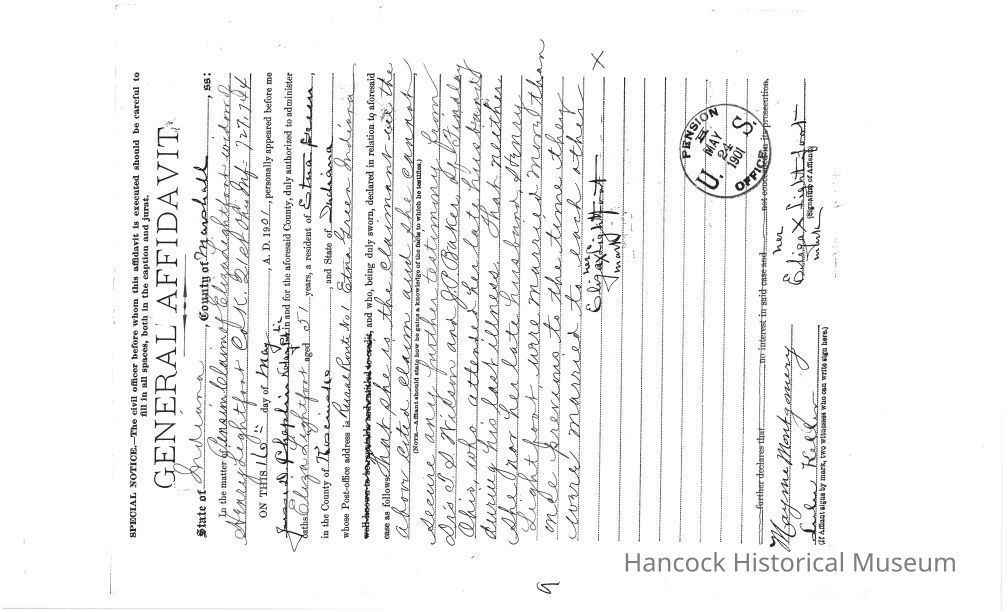 SPECIAL NOTICE.—The civil officer before whom this affidavit is executed should be careful to
fill in all spaces, both in the caption and jurat.
GENERAL AFFIDAVIT.
State of Indiana, County of Marshall, ss:
In the matter Pension Claim of Eliza Lightfoot widow of
Henry Lightfoot Co K 31st Ohio Inf. 727.744
ON THIS 16th day of May, A. D. 1901, personally appeared before me
James D Chaplin Notary Public in and for the aforesaid County, duly authorized to administer
oaths Eliza Lightfoot aged 51 years, a resident of Etna Green,
in the County of Kosciusko, and State of Indiana
whose Post-office address is Rural Route No 1 Etna Green Indiana
well known to be reputable and entitled to credit, and who, being duly sworn, declared in relation to aforesaid
case as follows: That she is the claimant in the
above cited Claim and she cannot
(NOTE.—Affiant should state how he gains a knowledge of the facts to which he testifies.)
secure any further testimony from
Drs T J Wilson and J. P. Baker of Findlay
Ohio, who attended her late husband
during his last illness. That neither
she nor her late husband, Henry
Lightfoot were married more than
once previous to the time they
were married to each other
her
Eliza X Lightfoot
mark
X
U. S. PENSION OFFICE MAY 24 1901
further declares that no interest in said case and not concerned in its prosecution.
her
Eliza X Lightfoot
mark
(Signature of Affiant)
Mayme Montgomery
Keller
(If Affiant signs by mark, two witnesses who can write sign here.)
9
Hancock Historical Museum